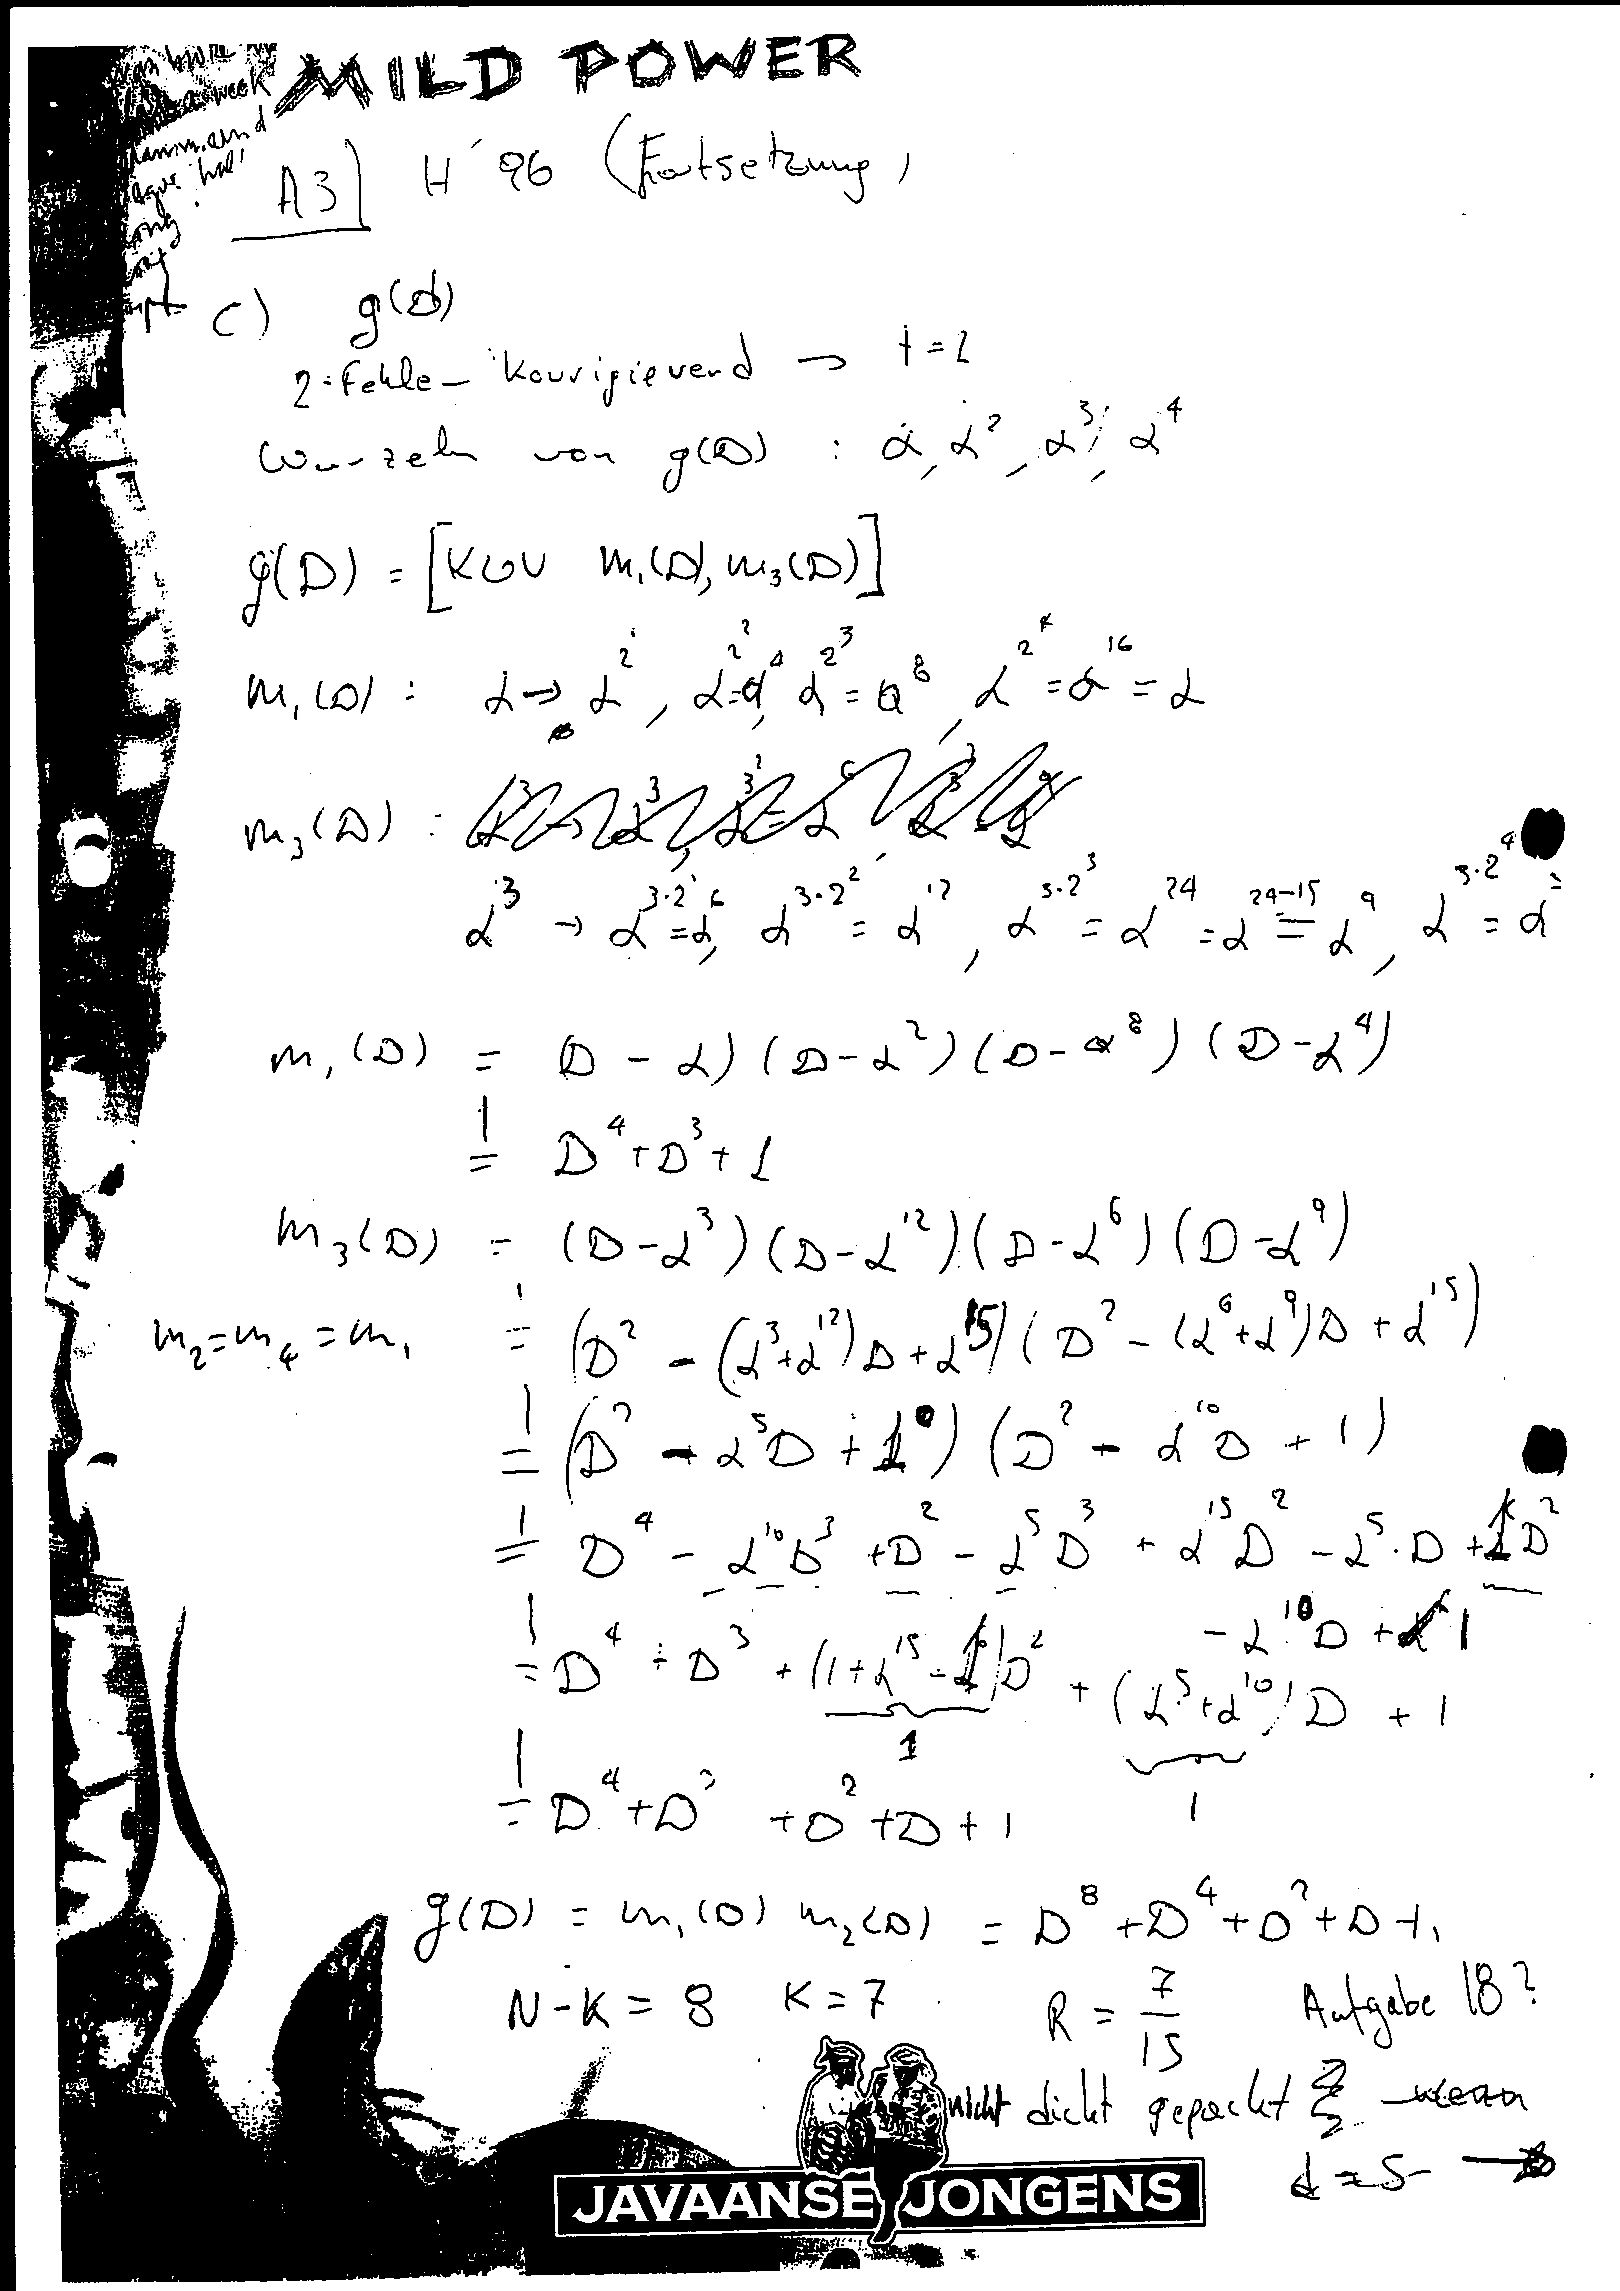 MILD POWER
week
A3] H'96 (Fortsetzung,
c) g(D)
2-Fehler-korrigierend → t=2
Wurzeln von g(D) : α, α², α³, α⁴
g(D) = [KGV m₁(D), m₃(D)]
m₁(D) : α → α², α^2^2=α⁴, α^2^3=α⁸, α^2^4=α¹⁶=α
m₃(D) :
α³ → α^3·2=α⁶, α^3·2²=α¹², α^3·2³=α²⁴=α^24-15=α⁹, α^3·2⁴=α
m₁(D) = (D-α)(D-α²)(D-α⁸)(D-α⁴)
= D⁴+D³+1
m₃(D) = (D-α³)(D-α¹²)(D-α⁶)(D-α⁹)
m₂=m₄=m₁ = (D²-(α³+α¹²)D+α¹⁵)(D²-(α⁶+α⁹)D+α¹⁵)
= (D²-α⁵D+1)(D²-α¹⁰D+1)
= D⁴-α¹⁰D³+D²-α⁵D³+α¹⁵D²-α⁵·D+1D²
-α¹⁰D+1
= D⁴+D³+(1+α¹⁵-1)D²+(α⁵+α¹⁰)D+1
1 1
= D⁴+D³+D²+D+1
g(D) = m₁(D) m₂(D) = D⁸+D⁴+D²+D+1
N-K=8 K=7 R=7/15 Aufgabe 18?
nicht dicht gepackt
d=5 →
JAVAANSE JONGENS